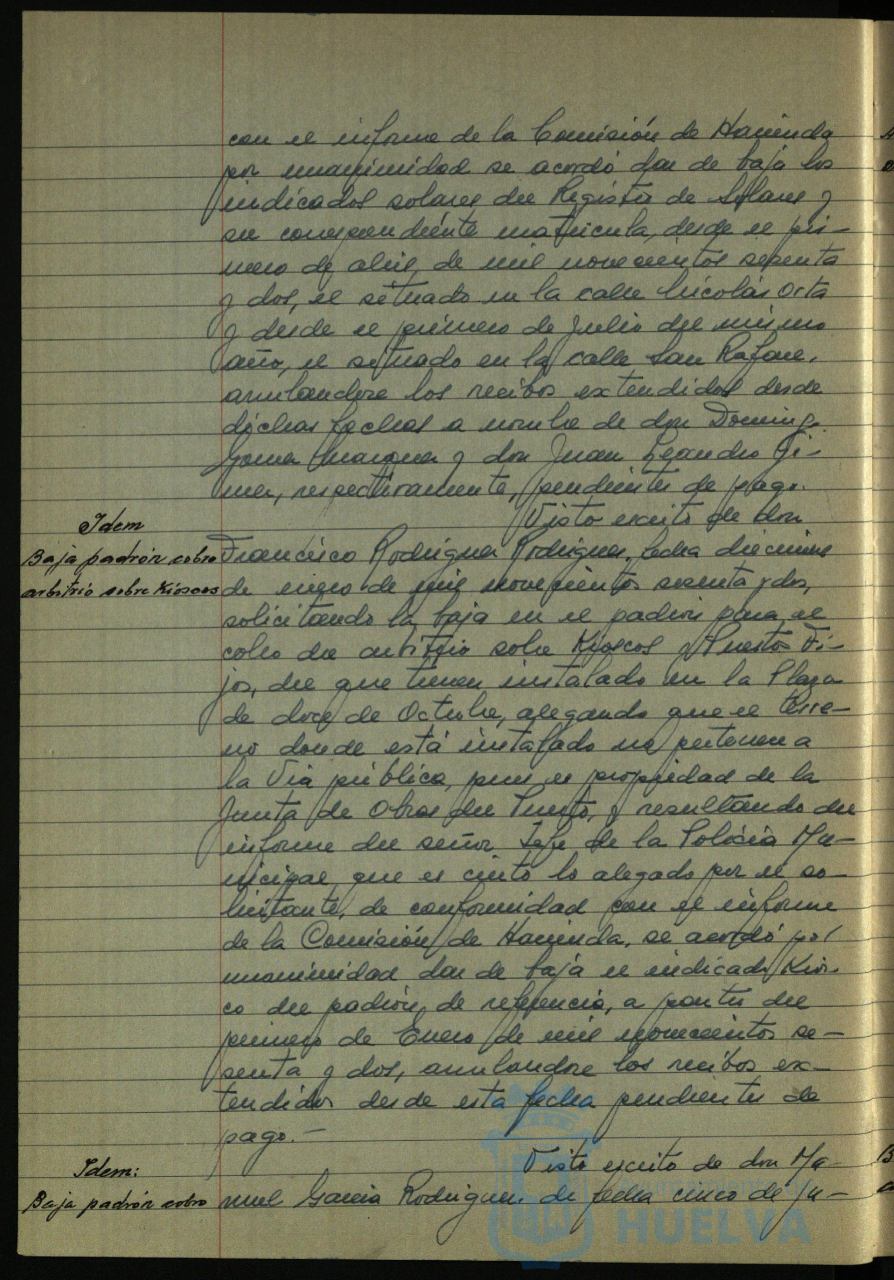 con el informe de la Comisión de Hacienda
por unanimidad se acordó dar de baja los
indicados solares del Registro de Solares y
su correspondiente matrícula, desde el pri-
mero de abril, de mil novecientos sesenta
y dos, el situado en la calle Nicolás Orta
y desde el primero de Julio del mismo
año, el situado en la calle San Rafael,
anulandose los recibos extendidos desde
dichas fechas a nombre de don Domingo
Gomez Marquez y don Juan Leandro Ji-
menez, respectivamente, pendientes de pago.
Visto escrito de don
Idem
Baja padrón sobre
arbitrio sobre Kioscos
Francisco Rodriguez Rodriguez, fecha diecinueve
de enero de mil novecientos sesenta y dos,
solicitando la baja en el padrón para el
cobro del arbitrio sobre Kioscos y Puestos Fi-
jos, del que tienen instalado en la Plaza
de doce de Octubre, alegando que el terre-
no donde está instalado no pertenece a
la Via pública, pues es propiedad de la
Junta de Obras del Puerto, y resultando del
informe del señor Jefe de la Policia Mu-
nicipal que es cierto lo alegado por el so-
licitante, de conformidad con el informe
de la Comisión de Hacienda, se acordó por
unanimidad dar de baja el indicado Kios-
co del padrón de referencia, a partir del
primero de Enero de mil novecientos se-
senta y dos, anulandose los recibos ex-
tendidos desde esta fecha pendientes de
pago.-
Idem:
Baja padrón sobre
Visto escrito de don Ma-
nuel Garcia Rodriguez de fecha cinco de Ju-
HUELVA